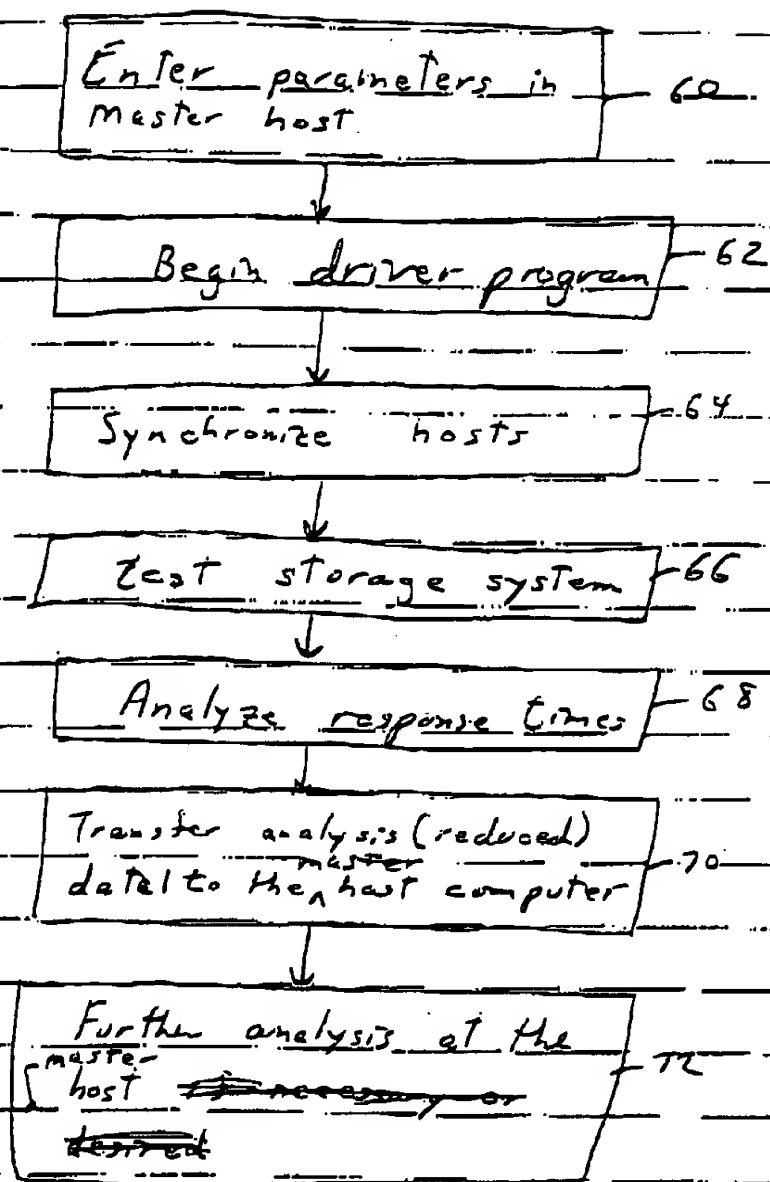 Enter parameters in
master host
60
Begin driver program
62
Synchronize hosts
64
Test storage system
66
Analyze response times
68
Transfer analysis (reduced)
master
data to the ^ host computer
70
Further analysis at the
master
host if necessary or
desired
72